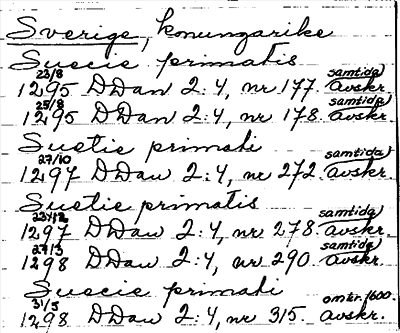 Sverige, konungarike
Suecie primatis
1295 23/8 DDan 2:4, nr 177. samtida avskr.
1295 25/8 DDan 2:4, nr 178. samtida avskr.
Suetie primati
1297 27/10 DDan 2:4, nr 272. samtida avskr.
Suetie primatis
1297 DDan 2:4, nr 278. samtida avskr.
1298 27/3 DDan 2:4, nr 290. samtida avskr.
Suecie primati
1298 31/5 DDan 2:4, nr 315. omkr. 1600. avskr.